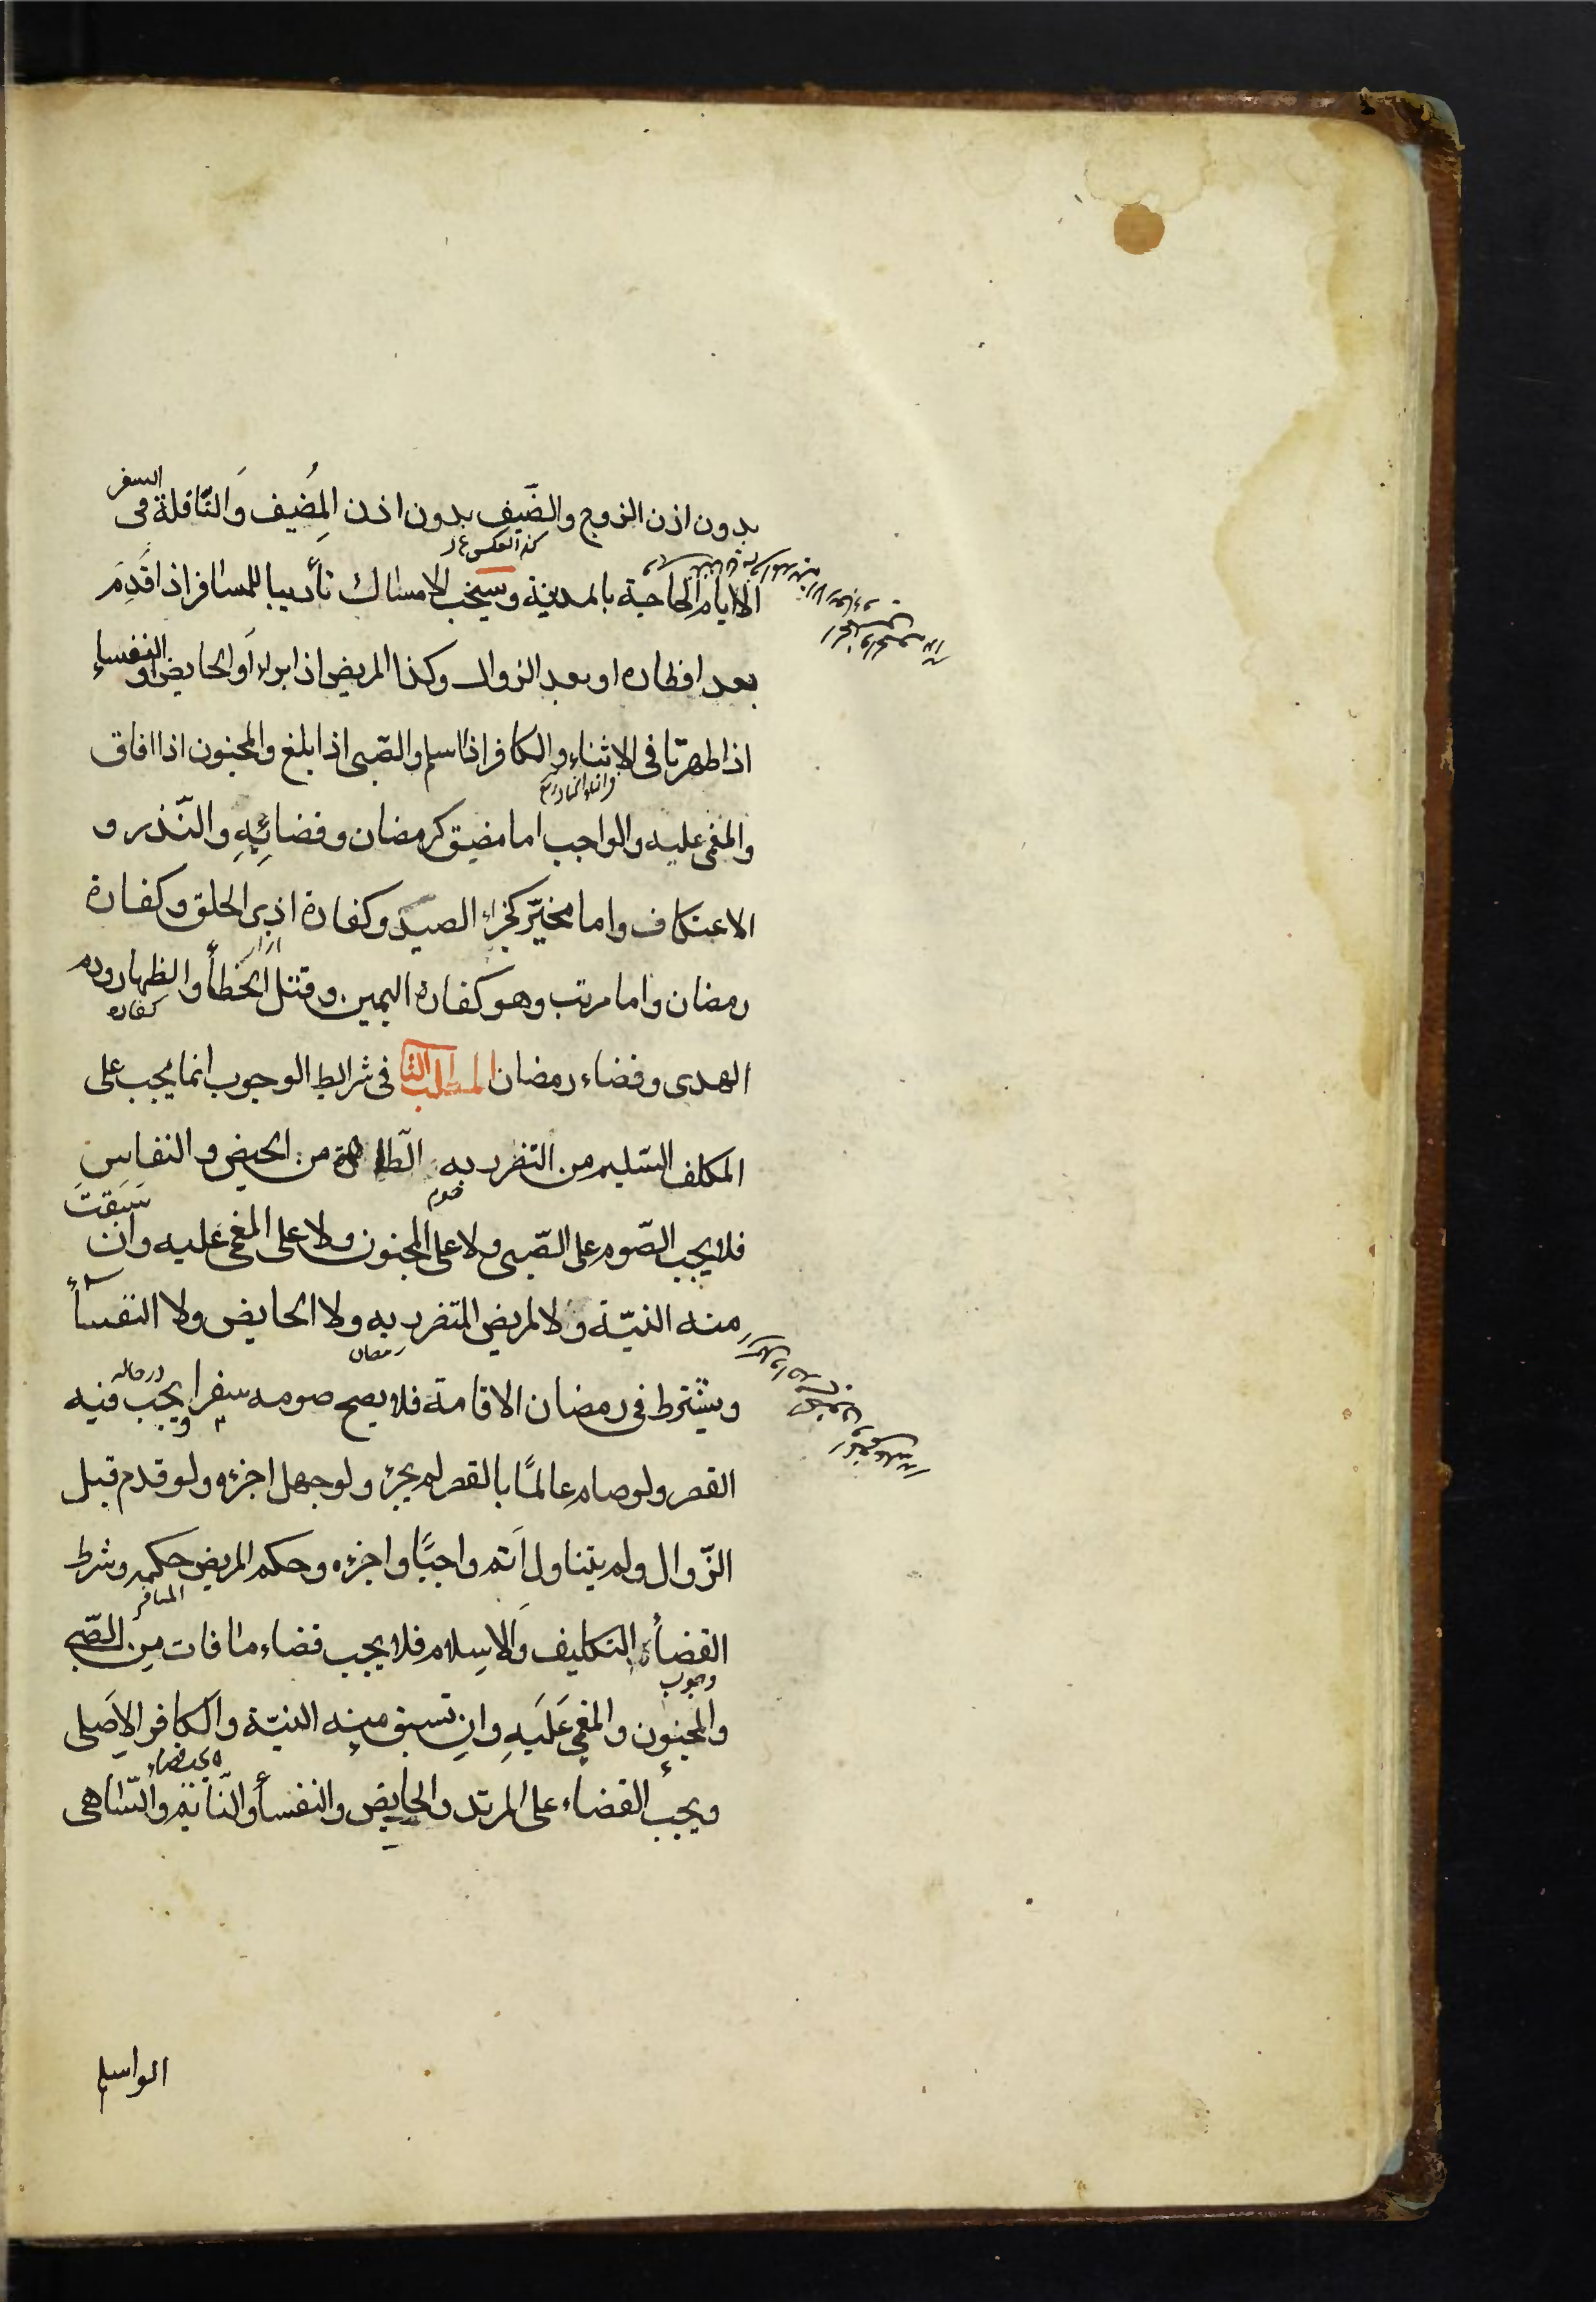 بدون اذن الزوج والضَيفِ بدون اذن المُضيف وَالنّافلة فى السفر
الا ايام الحاجة بالمدينة ويستحب الامساك تأديبا للمسافر اذا قَدِمَ
بعد افطاره او بعد الزوال وكذا المريض اذا برا أو الحايض او النفساء
اذا طهرتا فى الاثناء والكافر اذا اسلم والصّبى اذا بلغ والمجنون اذا افاق
والمغمى عليه والواجب اما مضيق كرمضان وقضائِهِ والنّذر و
الاعتكاف واما مخيّر كجزاء الصيد وكفارة اذى الحلق وكفارة
رمضان واما مرتب وهو كفارة اليمين وقتل الخطأ والظهار ودم
الهدى وقضاء رمضان المطلب الثا فى شرايط الوجوب انما يجب على
المكلف السّليم من التضرر به الطاهرة من الحيض والنفاس
فلا يجب الصّوم على الصّبى ولا على المجنون ولا على المغمى عليه وان سَبَقتَ
منه النيّة ولا لمريض المتضرر به ولا الحايض ولا النفسأ
ويشترط فى رمضان الاقامة فلا يصح صومه سفرا يجب فيه
القصر ولو صام عالمًا بالقصر لم يجزء ولو جهل اجزءه ولو قدم قبل
الزّوال ولم يتناول اَتم واجبًا واجزءه وحكم المريض حكمه وشرط
المسافر
القضأ التكليف وَالاسِلام فلا يجب قضاء ما فات مِن الصّبى
وجوب
والمجنون والمغمى عَلَيهِ وانِ تسبق منه النيّة والكافر الاصَلى
ويجب القضاء على المرتد والحايض والنفسأ والنّائم والسّاهى
الواسلم